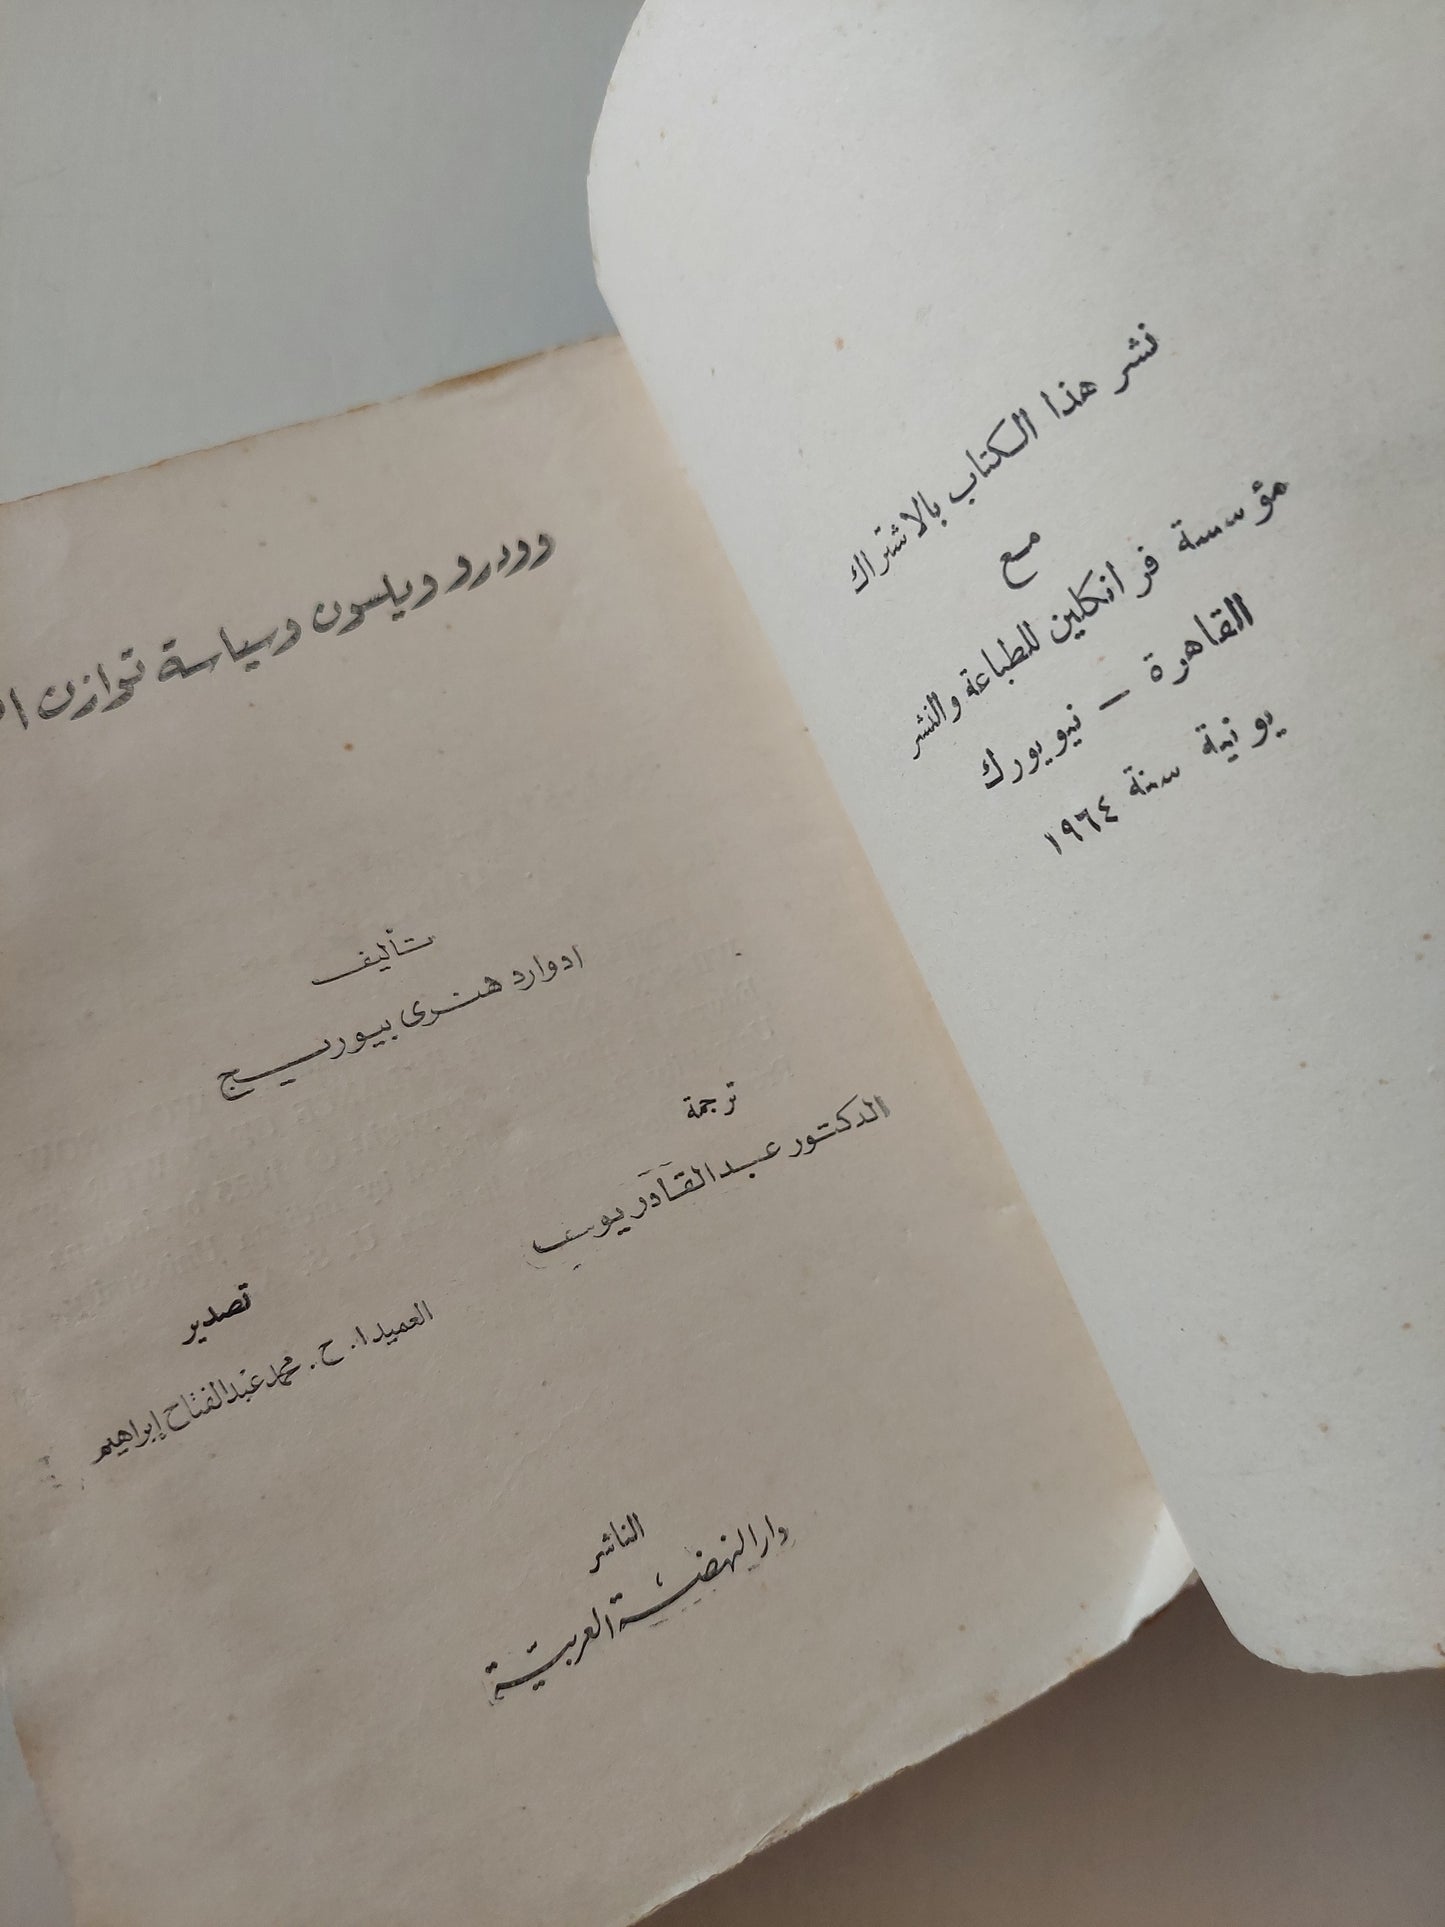 نشر هذا الكتاب بالاشتراك
مع
مؤسسة فرانكلين للطباعة والنشر
القاهرة – نيويورك
يونية سنة ١٩٦٤
وودرو ويلسون وسياسة توازن
تأليف
ادوارد هنرى بيوريج
ترجمة
الدكتور عبد القادر يوسف
تصدير
العميد ا. ح. محمد عبد الفتاح إبراهيم
الناشر
دار النهضة العربية